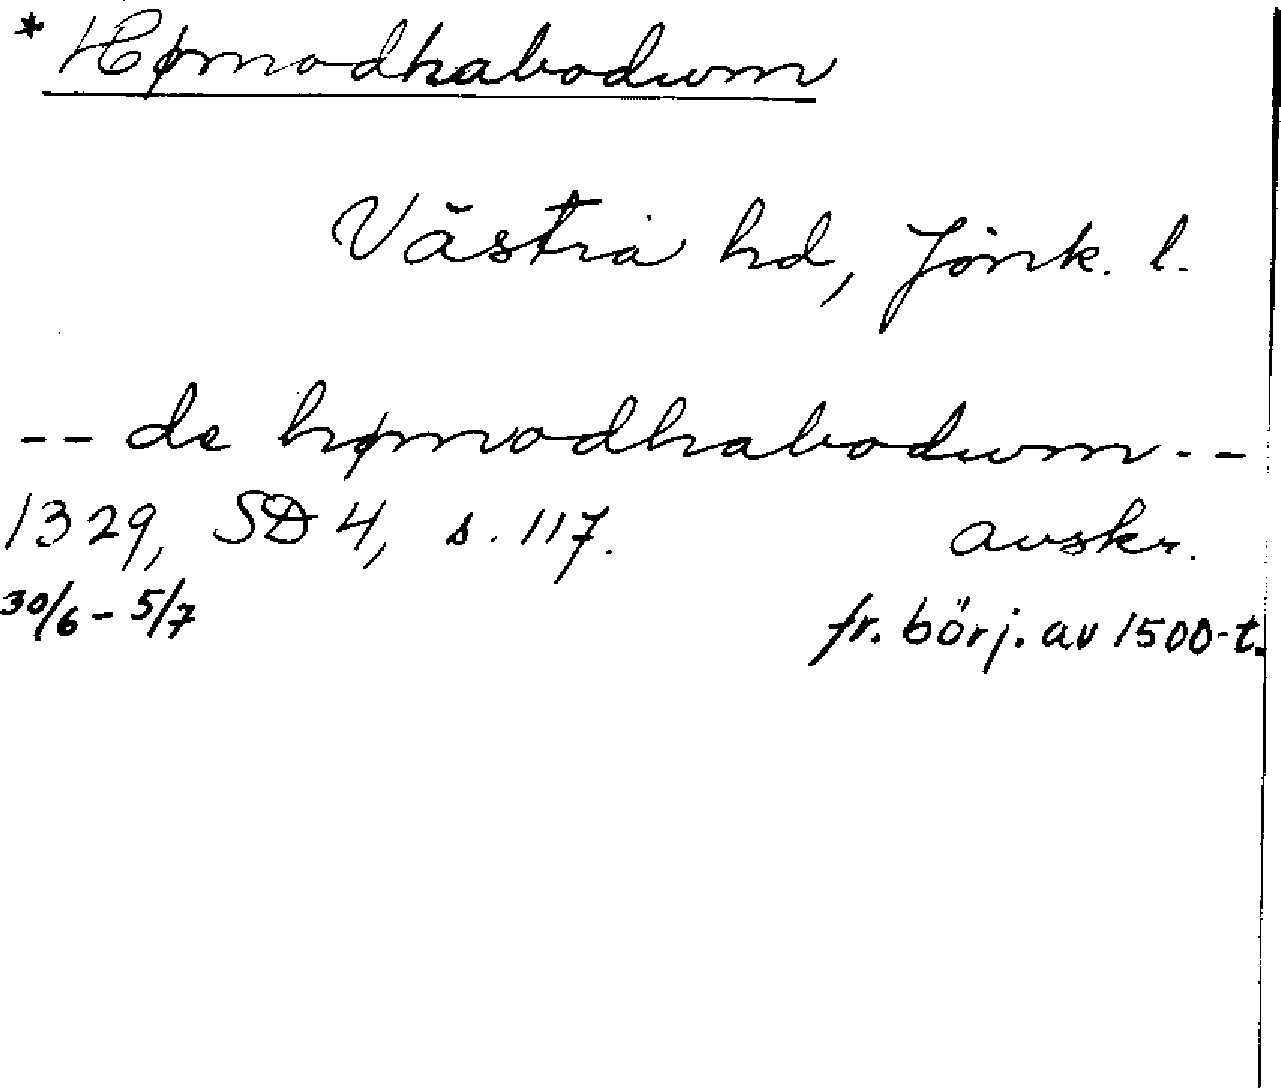 * Hømodhabodum
Västra hd, Jönk. l.
-- de hømodhabodum --
1329, SD 4, s. 117. avskr.
30/6 - 5/7 fr. börj. av 1500-t.